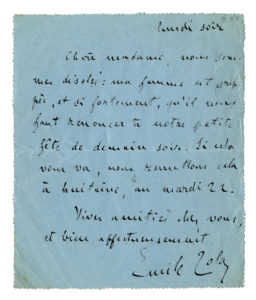 lundi soir
Chère madame, nous som-
mes désolés: ma femme est grip-
pée, et si fortement, qu'il nous
faut renoncer à notre petite
fête de demain soir. Si cela
vous va, nous remettons cela
à huitaine, au mardi 22.
Vives amitiés chez vous,
et bien affectueusement.
Emile Zola